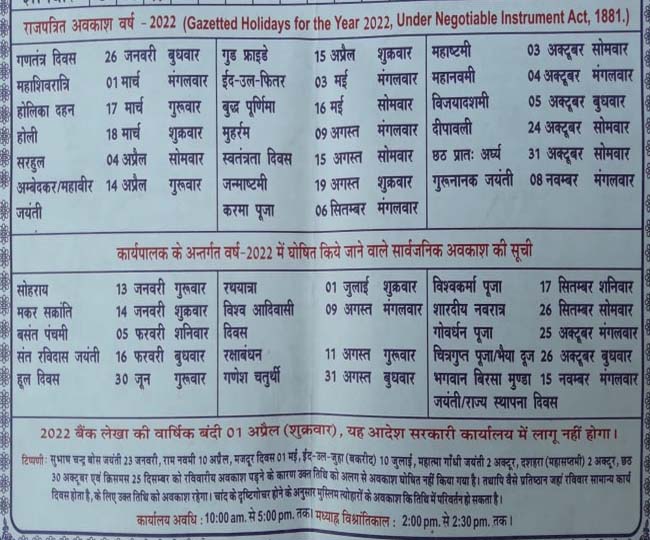 राजपत्रित अवकाश वर्ष - 2022 (Gazetted Holidays for the Year 2022, Under Negotiable Instrument Act, 1881.)
गणतंत्र दिवस 26 जनवरी बुधवार
महाशिवरात्रि 01 मार्च मंगलवार
होलिका दहन 17 मार्च गुरूवार
होली 18 मार्च शुक्रवार
सरहुल 04 अप्रैल सोमवार
अम्बेदकर/महावीर 14 अप्रैल गुरूवार
जयंती
गुड फ्राइडे 15 अप्रैल शुक्रवार
ईद-उल-फितर 03 मई मंगलवार
बुद्ध पूर्णिमा 16 मई सोमवार
मुहर्रम 09 अगस्त मंगलवार
स्वतंत्रता दिवस 15 अगस्त सोमवार
जन्माष्टमी 19 अगस्त शुक्रवार
करमा पूजा 06 सितम्बर मंगलवार
महाष्टमी 03 अक्टूबर सोमवार
महानवमी 04 अक्टूबर मंगलवार
विजयादशमी 05 अक्टूबर बुधवार
दीपावली 24 अक्टूबर सोमवार
छठ प्रातः अर्घ्य 31 अक्टूबर सोमवार
गुरूनानक जयंती 08 नवम्बर मंगलवार
कार्यपालक के अन्तर्गत वर्ष-2022 में घोषित किये जाने वाले सार्वजनिक अवकाश की सूची
सोहराय 13 जनवरी गुरूवार
मकर सक्रांति 14 जनवरी शुक्रवार
बसंत पंचमी 05 फरवरी शनिवार
संत रविदास जयंती 16 फरवरी बुधवार
हूल दिवस 30 जून गुरूवार
रथयात्रा 01 जुलाई शुक्रवार
विश्व आदिवासी 09 अगस्त मंगलवार
दिवस
रक्षाबंधन 11 अगस्त गुरूवार
गणेश चतुर्थी 31 अगस्त बुधवार
विश्वकर्मा पूजा 17 सितम्बर शनिवार
शारदीय नवरात्र 26 सितम्बर सोमवार
गोवर्धन पूजा 25 अक्टूबर मंगलवार
चित्रगुप्त पूजा/भैया दूज 26 अक्टूबर बुधवार
भगवान बिरसा मुण्डा 15 नवम्बर मंगलवार
जयंती/राज्य स्थापना दिवस
2022 बैंक लेखा की वार्षिक बंदी 01 अप्रैल (शुक्रवार), यह आदेश सरकारी कार्यालय में लागू नहीं होगा।
टिप्पणी: सुभाष चन्द्र बोस जयंती 23 जनवरी, राम नवमी 10 अप्रैल, मजदूर दिवस 01 मई, ईद-उल-जुहा (बकरीद) 10 जुलाई, महात्मा गाँधी जयंती 2 अक्टूर, दशहरा (महासप्तमी) 2 अक्टूर, छठ
30 अक्टूबर एवं क्रिसमस 25 दिसम्बर को रविवारीय अवकाश पड़ने के कारण उक्त तिथि को अलग से अवकाश घोषित नहीं किया गया है। तथापि वैसे प्रतिष्ठान जहां रविवार सामान्य कार्य
दिवस होता है, के लिए उक्त तिथि को अवकाश रहेगा। चांद के दृष्टिगोचर होने के अनुसार मुस्लिम त्योहारों के अवकाश कि तिथि में परिवर्तन हो सकता है।
कार्यालय अवधि : 10:00 am. से 5:00 pm. तक। मध्याह्न विश्रांतिकाल : 2:00 pm. से 2:30 pm. तक।